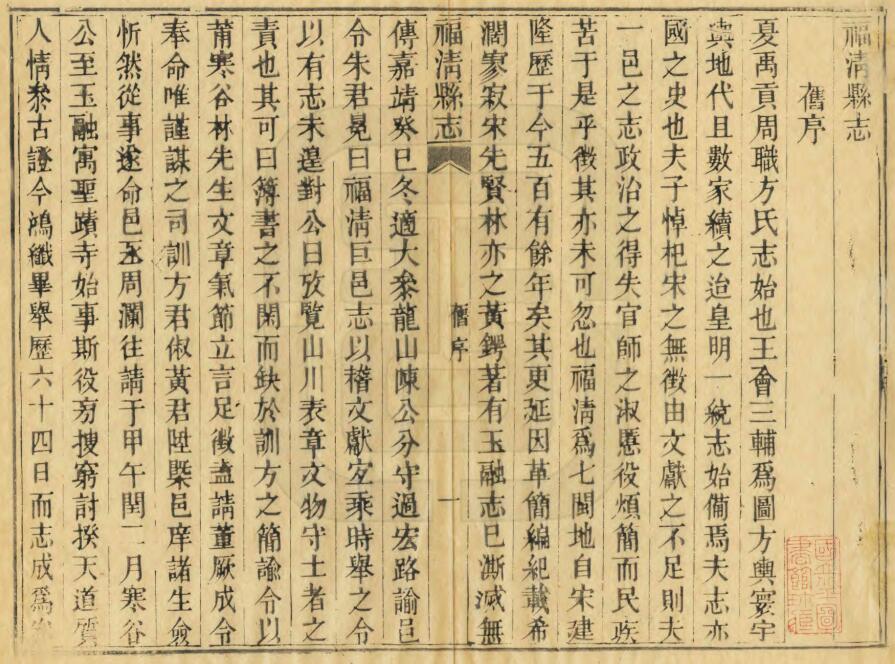 福清縣志
舊序
夏禹貢周職方氏志始也王會三輔爲圖方輿寰宇
輿地代且數家續之迨皇明一統志始備焉夫志亦
國之史也夫子悼杞宋之無徵由文獻之不足則夫
一邑之志政治之得失官師之淑慝役煩簡而民疾
苦于是乎徵其亦未可忽也福清爲七閩地自宋建
隆歷于今五百有餘年矣其更延因革簡編紀載希
濶寥寂宋先賢林亦之黃鍔著有玉融志已澌滅無
福清縣志
舊序
一
傳嘉靖癸巳冬適大叅龍山陳公分守過宏路諭邑
令朱君晃曰福清巨邑志以稽文獻宜乘時舉之令
以有志未遑對公曰攷覽山川表章文物守土者之
責也其可曰簿書之不閑而缺於訓方之簡諭令以
莆寒谷林先生文章氣節立言足徵盍請董厥成令
奉命唯謹謀之司訓方君俶黃君陞槩邑庠諸生僉
忻然從事遂命邑丞周瀾往請于甲午閏二月寒谷
公至玉融寓聖蹟寺始事斯役旁搜窮討揆天道質
人情叅古證今鴻纖畢舉歷六十四日而志成爲